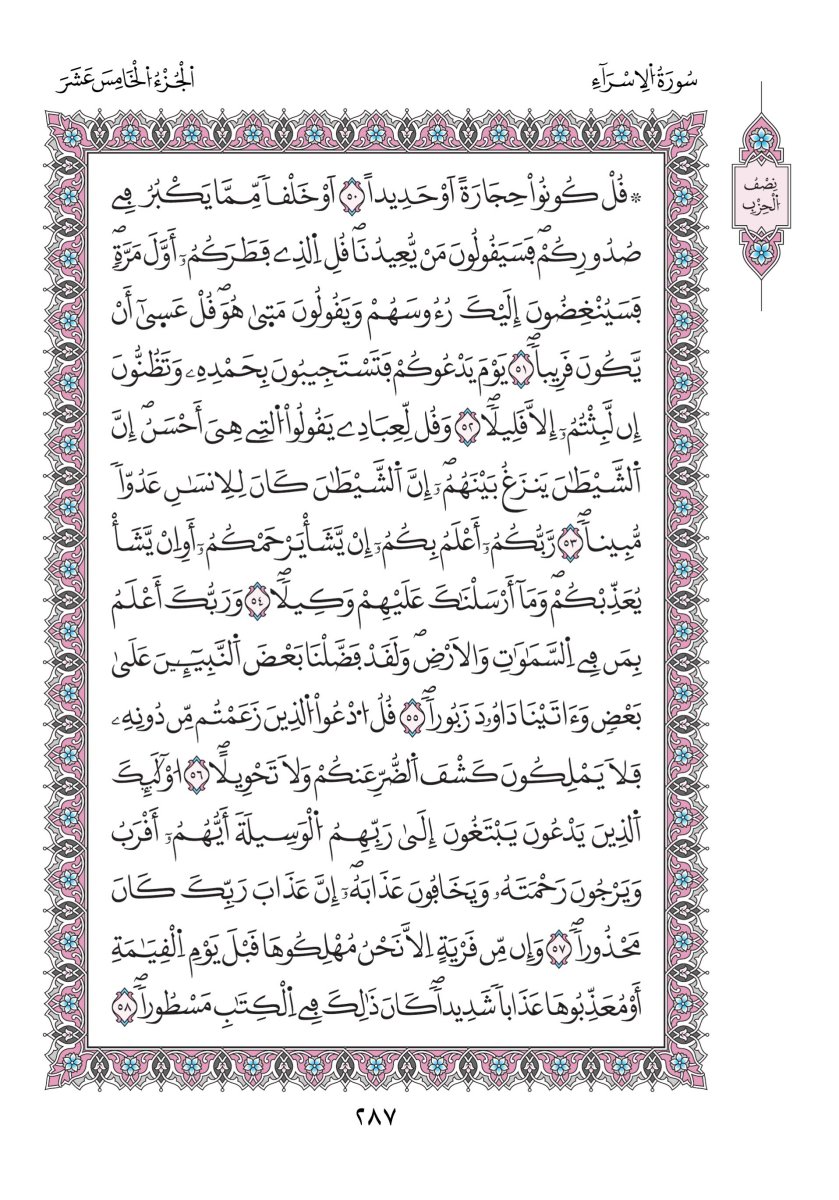 سُورَةُ الِاسْرَآءِ
الْجُزْءُ الْخَامِسَ عَشَرَ
نِصْفُ
الْحِزْبِ
* قُلْ كُونُواْ حِجَارَةً اَوْ حَدِيداً ٥٠ اَوْ خَلْقاً مِّمَّا يَكْبُرُ فِے
صُدُورِكُمْۖ فَسَيَقُولُونَ مَنْ يُّعِيدُنَاۖ قُلِ اِ۬لذِے فَطَرَكُمُۥٓ أَوَّلَ مَرَّةٖۖ
فَسَيُنْغِضُونَ إِلَيْكَ رُءُوسَهُمْ وَيَقُولُونَ مَتٰى هُوَۖ قُلْ عَسٰىٓ أَنْ
يَّكُونَ قَرِيباًۖ ٥١ يَوْمَ يَدْعُوكُمْ فَتَسْتَجِيبُونَ بِحَمْدِهِۦ وَتَظُنُّونَ
إِن لَّبِثْتُمُۥٓ إِلاَّ قَلِيلاًۖ ٥٢ وَقُل لِّعِبَادِے يَقُولُواْ اُ۬لتِے هِيَ أَحْسَنُۖ إِنَّ
اَ۬لشَّيْطَٰنَ يَنزَغُ بَيْنَهُمُۥٓۖ إِنَّ اَ۬لشَّيْطَٰنَ كَانَ لِلِانسَٰنِ عَدُوّاً
مُّبِيناًۖ ٥٣ رَّبُّكُمُۥٓ أَعْلَمُ بِكُمُۥٓ إِنْ يَّشَأْ يَرْحَمْكُمُۥٓ أَوِ اِنْ يَّشَأْ
يُعَذِّبْكُمْۖ وَمَآ أَرْسَلْنَٰكَ عَلَيْهِمْ وَكِيلاًۖ ٥٤ وَرَبُّكَ أَعْلَمُ
بِمَن فِے اِ۬لسَّمَٰوَٰتِ وَالَارْضِۖ وَلَقَدْ فَضَّلْنَا بَعْضَ اَ۬لنَّبِيٓـِٕينَ عَلَىٰ
بَعْضٖ وَءَاتَيْنَا دَاوُۥدَ زَبُوراًۖ ٥٥ قُلُ اُ۟دْعُواْ اُ۬لذِينَ زَعَمْتُم مِّن دُونِهِۦ
فَلاَ يَمْلِكُونَ كَشْفَ اَ۬لضُّرِّ عَنكُمْ وَلاَ تَحْوِيلاًۖ ٥٦ اُ۟وْلَٰٓئِكَ
اَ۬لذِينَ يَدْعُونَ يَبْتَغُونَ إِلَىٰ رَبِّهِمُ اُ۬لْوَسِيلَةَ أَيُّهُمُۥٓ أَقْرَبُ
وَيَرْجُونَ رَحْمَتَهُۥ وَيَخَافُونَ عَذَابَهُۥٓۖ إِنَّ عَذَابَ رَبِّكَ كَانَ
مَحْذُوراًۖ ٥٧ وَإِن مِّن قَرْيَةٍ اِلاَّ نَحْنُ مُهْلِكُوهَا قَبْلَ يَوْمِ اِ۬لْقِيَٰمَةِ
أَوْ مُعَذِّبُوهَا عَذَاباً شَدِيداًۖ كَانَ ذَٰلِكَ فِے اِ۬لْكِتَٰبِ مَسْطُوراًۖ ٥٨
٢٨٧